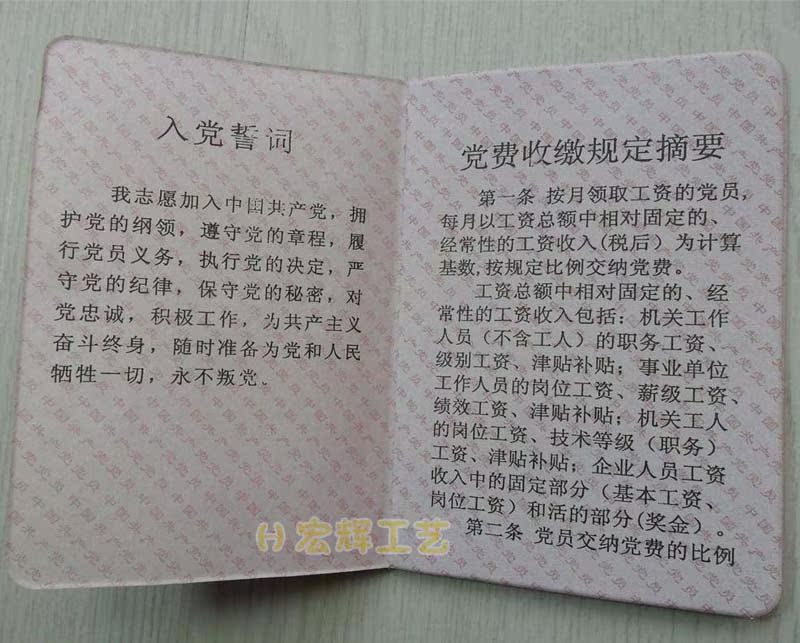 入党誓词
我志愿加入中国共产党，拥
护党的纲领，遵守党的章程，履
行党员义务，执行党的决定，严
守党的纪律，保守党的秘密，对
党忠诚，积极工作，为共产主义
奋斗终身，随时准备为党和人民
牺牲一切，永不叛党。
党费收缴规定摘要
第一条 按月领取工资的党员，
每月以工资总额中相对固定的、
经常性的工资收入(税后）为计算
基数,按规定比例交纳党费。
工资总额中相对固定的、经
常性的工资收入包括：机关工作
人员（不含工人）的职务工资、
级别工资、津贴补贴；事业单位
工作人员的岗位工资、薪级工资、
绩效工资、津贴补贴；机关工人
的岗位工资、技术等级（职务）
工资、津贴补贴；企业人员工资
收入中的固定部分（基本工资、
岗位工资）和活的部分(奖金）。
第二条 党员交纳党费的比例
宏辉工艺